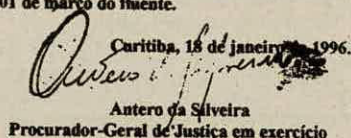 01 de março do fluente.
Curitiba, 18 de janeiro de 1996.
Antero da Silveira
Procurador-Geral de Justiça em exercício